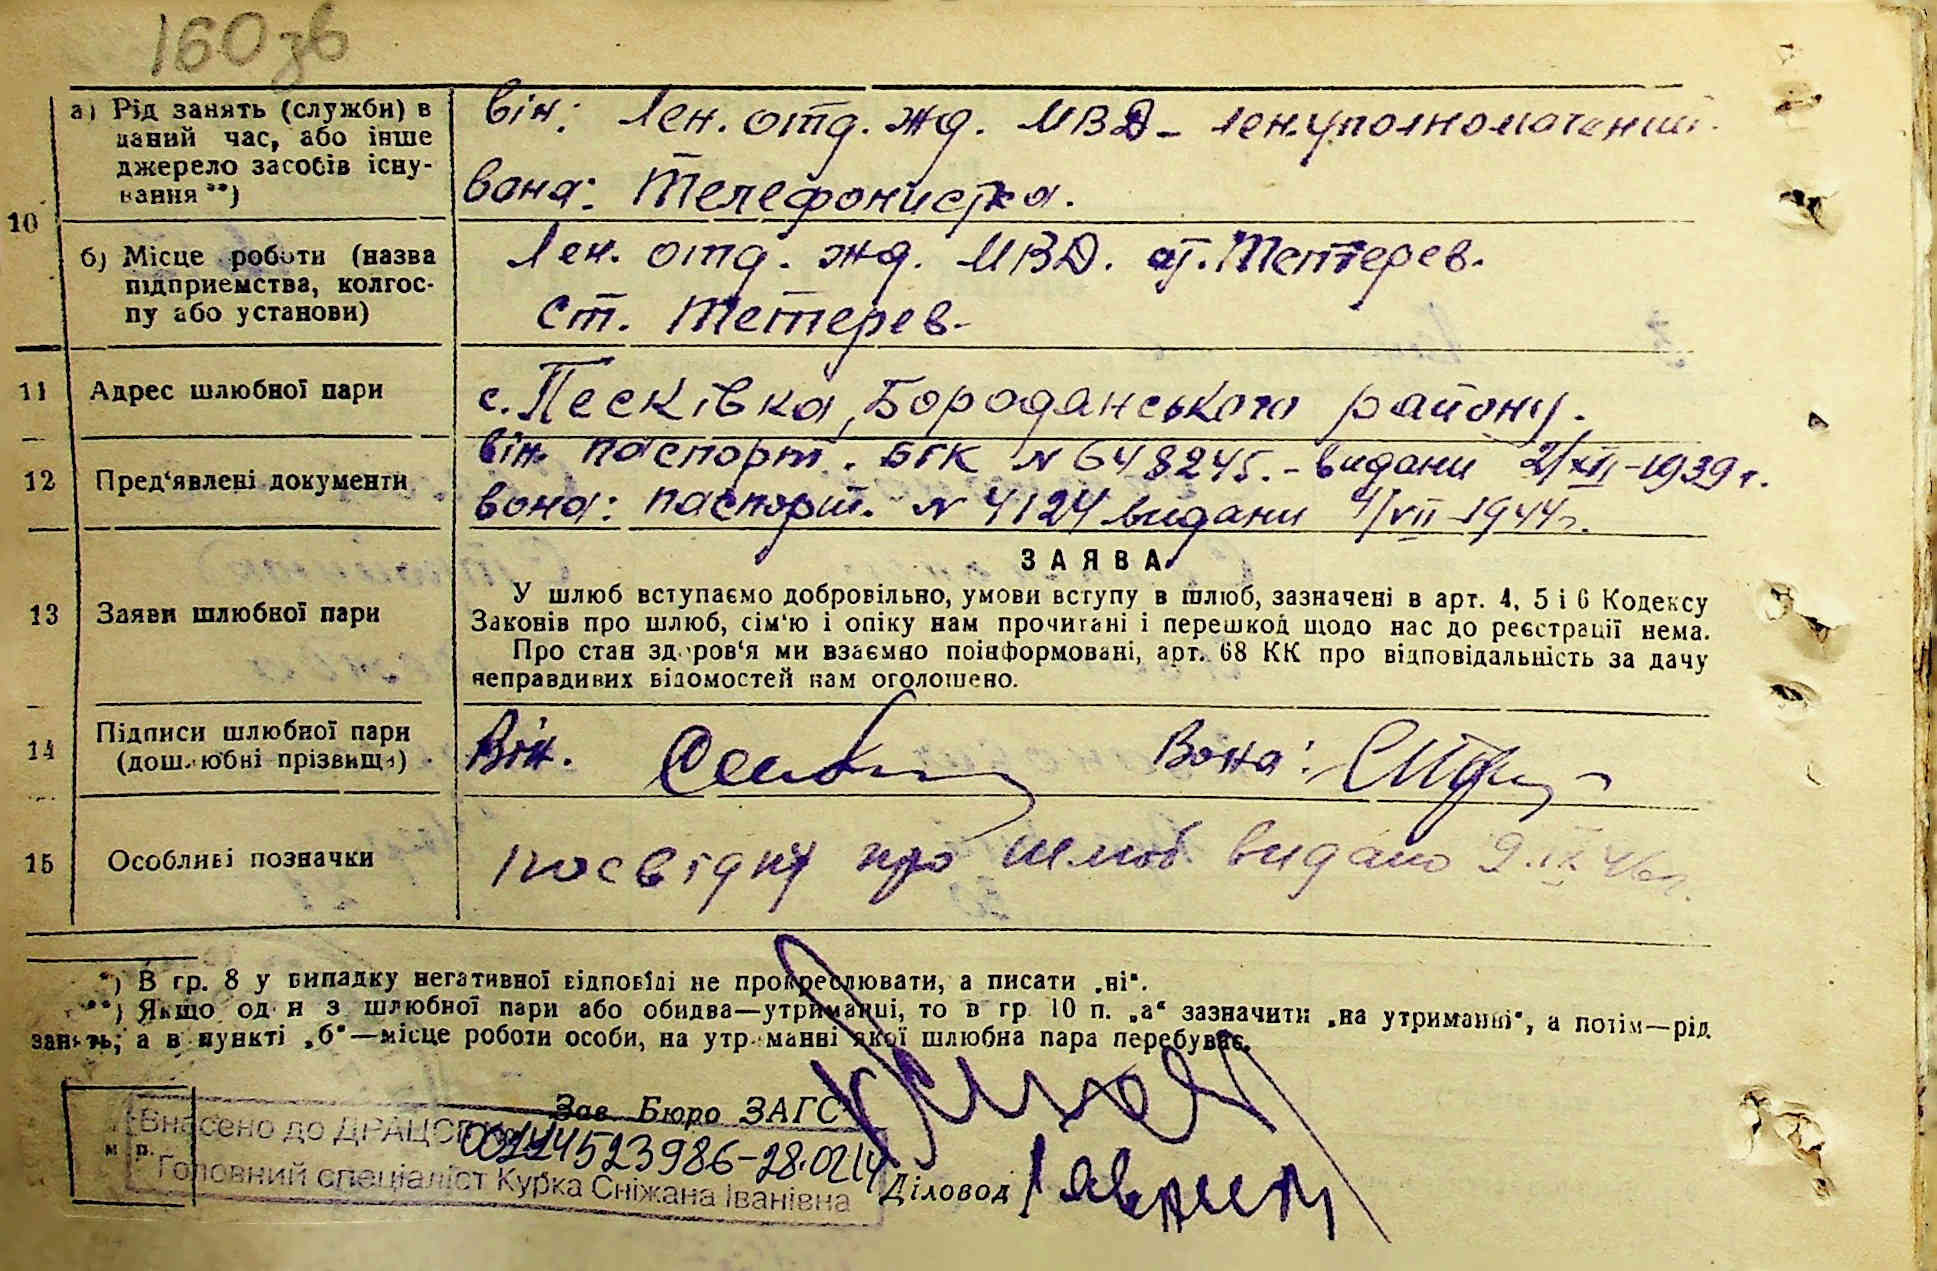 160 зв
10
а) Рід занять (служби) в
даний час, або інше
джерело засобів існу-
вання **)
він: Лен. отд. жд. МВД - лен.уполномоченний.
вона: Телефонистка.
б) Місце роботи (назва
підприємства, колгос-
пу або установи)
Лен. отд. жд. МВД. ст. Тетерев.
ст. Тетерев.
11 Адрес шлюбної пари
с. Песківка, Бородянського району.
12 Пред'явлені документи
він. паспорт. БГК № 648245. - видани 2/XII-1939 г.
вона: паспорт. № 4124 видани 4/VII-1944г.
13 Заяви шлюбної пари
ЗАЯВА
У шлюб вступаємо добровільно, умови вступу в шлюб, зазначені в арт. 4, 5 і 6 Кодексу
Законів про шлюб, сім'ю і опіку нам прочитані і перешкод щодо нас до реєстрації нема.
Про стан здоров'я ми взаємно поінформовані, арт. 68 КК про відповідальність за дачу
неправдивих відомостей нам оголошено.
14 Підписи шлюбної пари
(дошлюбні прізвища)
Він. Вона:
15 Особливі позначки
посвідку про шлюб видано 9.IX 46г.
*) В гр. 8 у випадку негативної відповіді не прокреслювати, а писати „ні“.
**) Якщо один з шлюбної пари або обидва—утриманці, то в гр. 10 п. „а“ зазначити „на утриманні“, а потім—рід
занять; а в пункті „б“—місце роботи особи, на утриманні якої шлюбна пара перебуває.
Зав. Бюро ЗАГС
м. п.
Внесено до ДРАЦСГ
00144523986-28.02.14
Головний спеціаліст Курка Сніжана Іванівна
Діловод